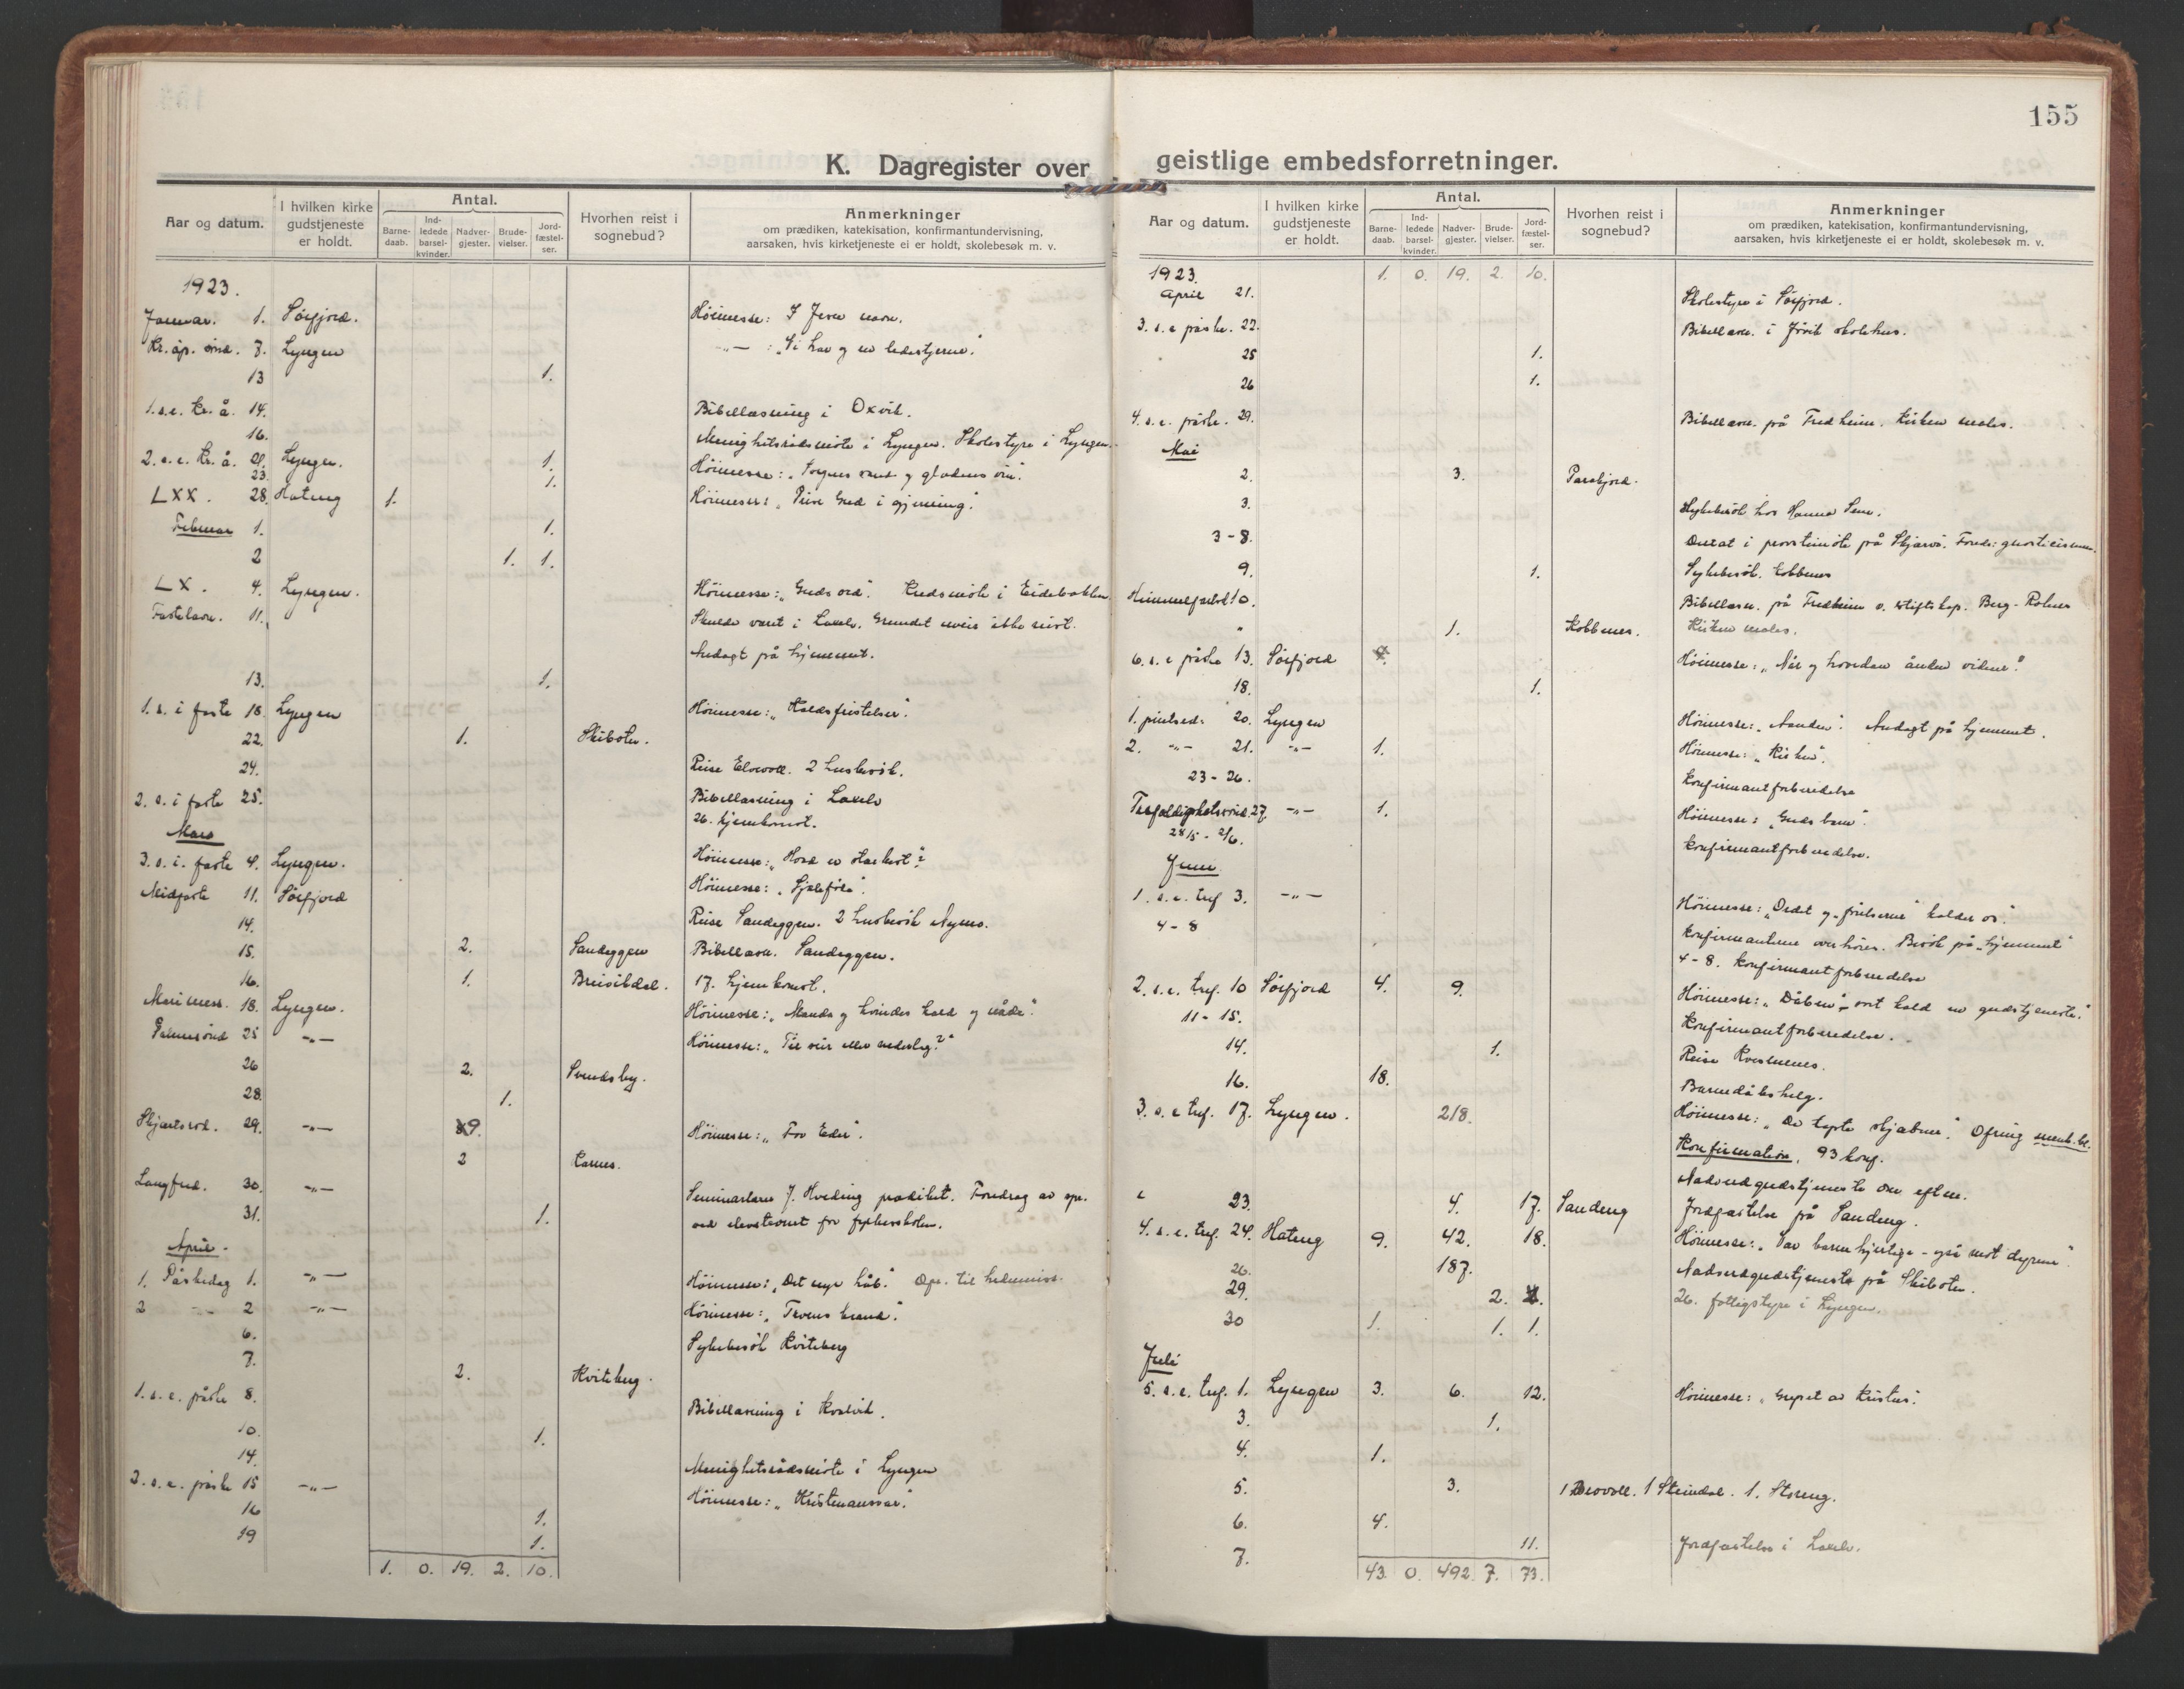 155
K. Dagregister over geistlige embedsforretninger.
Aar og datum. I hvilken kirke gudstjeneste er holdt. Antal. Barnedaab. Indledede barselkvinder. Nadvergjester. Brudevielser. Jordfæstelser. Hvorhen reist i sognebud? Anmerkninger om prædiken, katekisation, konfirmantundervisning, aarsaken, hvis kirketjeneste ei er holdt, skolebesøk m. v.
1923.
Januar. 1. Sörfjord. Höimesse: I Jesu navn.
Kr. åp. sönd. 7. Lyngen -"- : "Vi har og en ledestjerne".
13 1.
1.s.e. Kr. å. 14. Bibellæsning i Oxvik.
16. Menighetsrådsmöte i Lyngen. Skolestyre i Lyngen.
2. s. e. Kr. å. 21. Lyngen. 1. Höimesse: "Sorgens vand og glædens vin".
23. 1.
LXX. 28. Hateng 1. Höimesse: "Prise Gud i gjerning".
Februar 1. 1.
2 1. 1.
LX. 4. Lyngen. Höimesse: "Guds ord". Kredsmöte i Eidebakken
Fastelavn. 11. Skulde været i Lakselv. Grundet uveir ikke reist.
Andagt på hjemmet.
13. 1.
1. s. i faste 18 Lyngen Höimesse: "Kaldsfristelser".
22. 1. Skibotn.
24. Reise Elvevoll. 2 husbesök.
2. s. i faste 25. Bibellæsning i Lakselv
26. hjemkomst.
Mars
3. s. i. faste 4. Lyngen. Höimesse: "Hvad er stærkest"?
Midfaste 11. Sörfjord Höimesse: "Sjeleföde".
14. Reise Sandeggen. 2 husbesök Nymo.
15. 2. Sandeggen Bibellæsn. Sandeggen.
16. 1. Breivikdal. 17. hjemkomst.
Mari mess. 18. Lyngen. Höimesse: "Maria og hendes kald og nåde".
Palmesönd 25 -"- Höimesse: "Til seir eller nederlag?"
26 2. Svendsby.
28. 1.
Skjærtorsd. 29. -"- 9. Höimesse: "For Eder".
2 Karnes.
Langfred. 30. -"- Seminarlærer J. Hveding prædiket. Foredrag av spr.
31. 1. ved elevstevnet for fylkesskolen.
April.
1. Påskedag 1. -"- Höimesse: "Det nye håb". Opr. til hedenmiss.
2 -"- 2 -"- Höimesse: "Troens brand".
6. Sykebesök Kviteberg
7. 2. Kviteberg.
1. s. e. påske 8. Bibellæsning i Kvalvik.
10. 1.
14. Menighetsrådsmöte i Lyngen
2. s. e. påske 15 -"- Höimesse: "Kristenansvar".
16 1.
19 1.
1. 0. 19. 2. 10.
Aar og datum. I hvilken kirke gudstjeneste er holdt. Antal. Barnedaab. Indledede barselkvinder. Nadvergjester. Brudevielser. Jordfæstelser. Hvorhen reist i sognebud? Anmerkninger om prædiken, katekisation, konfirmantundervisning, aarsaken, hvis kirketjeneste ei er holdt, skolebesøk m. v.
1923. 1. 0. 19. 2. 10.
April 21. Skolestyre i Sörfjord.
3. s. e påske. 22. Bibellæsn. i Jövik skolehus.
25 1.
26 1.
4. s. e. påske. 29. Bibellæsn. på Fredheim. Kirken males.
Mai
2. 3. Parasfjord.
3. Sykebesök hos Hanna
3-8. på Skjervö.
9. 1. Sykebesök. Kobbenes
Himmelfartsd 10. Bibellæsn. på Fredheim v. stiftskap. Berg-Rolnes
" 1. Kobbenes. Kirken males.
6. s. e påske 13. Sörfjord Höimesse: "Når og hvordan ånden vidner".
18. 1.
1. pintsed. 20. Lyngen Höimesse: "Aanden". Andagt på hjemmet.
2. -"- 21. -"- 1. Höimesse: "Kirken".
23-26. Konfirmantforberedelse
Trefoldighetssönd. 27. -"- 1. Höimesse: "Guds barn".
28/5 - 2/6. Konfirmantforberedelse.
Juni
1. s. e. tref 3. -"- Höimesse: "Ordet og frelseren kalder os".
4-8 Konfirmanterne overhöres. Besök på "hjemmet"
4-8. Konfirmantforberedelse
2. s. e. tref. 10 Sörfjord 4. 9. Höimesse: "Dåben", vort kald en gudstjeneste."
11-15. Konfirmantforberedelse.
14. 1. Reise Kvesmenes.
16. 18. Barnedåbshelg.
3. s. e tref. 17. Lyngen. 218. Höimesse: "De tapte skjæbner". Ofring menh. bl.
Konfirmation. 93 konf.
Nadverdgudstjeneste om efterm.
23. 4. 17. Sandeng Jordfæstelse på Sandeng.
4. s. e. tref. 24. Hateng 9. 42. 18. Höimesse: "Vær barmhjertige - også mot dyrene".
26. 187. Nadverdgudstjeneste på Skibotn.
29. 2. 26. fattigstyre i Lyngen.
30 1. 1. 1.
Juli
5. s. e. tref. 1. Lyngen 3. 6. 12. Höimesse: "Grepet av Kristus".
3. 1.
4. 1.
5. 3. 1 Steindal. 1. Storeng.
6. 4.
7. 11. Jordfæstelse i Lakselv.
43. 0. 492. 7. 73.